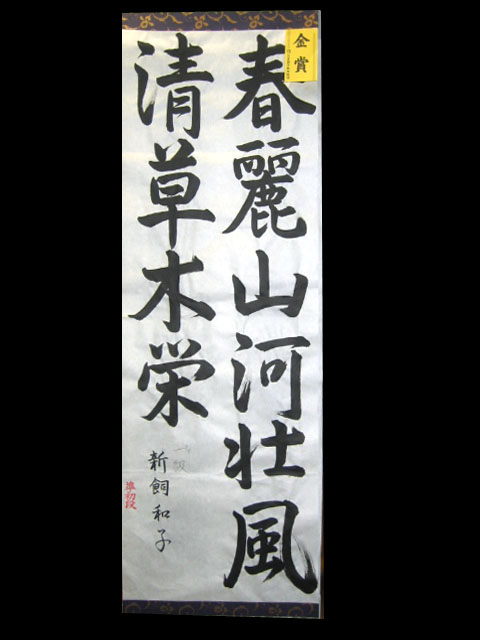 金賞
春麗山河壮風
清草木栄
新飼和子
準初段